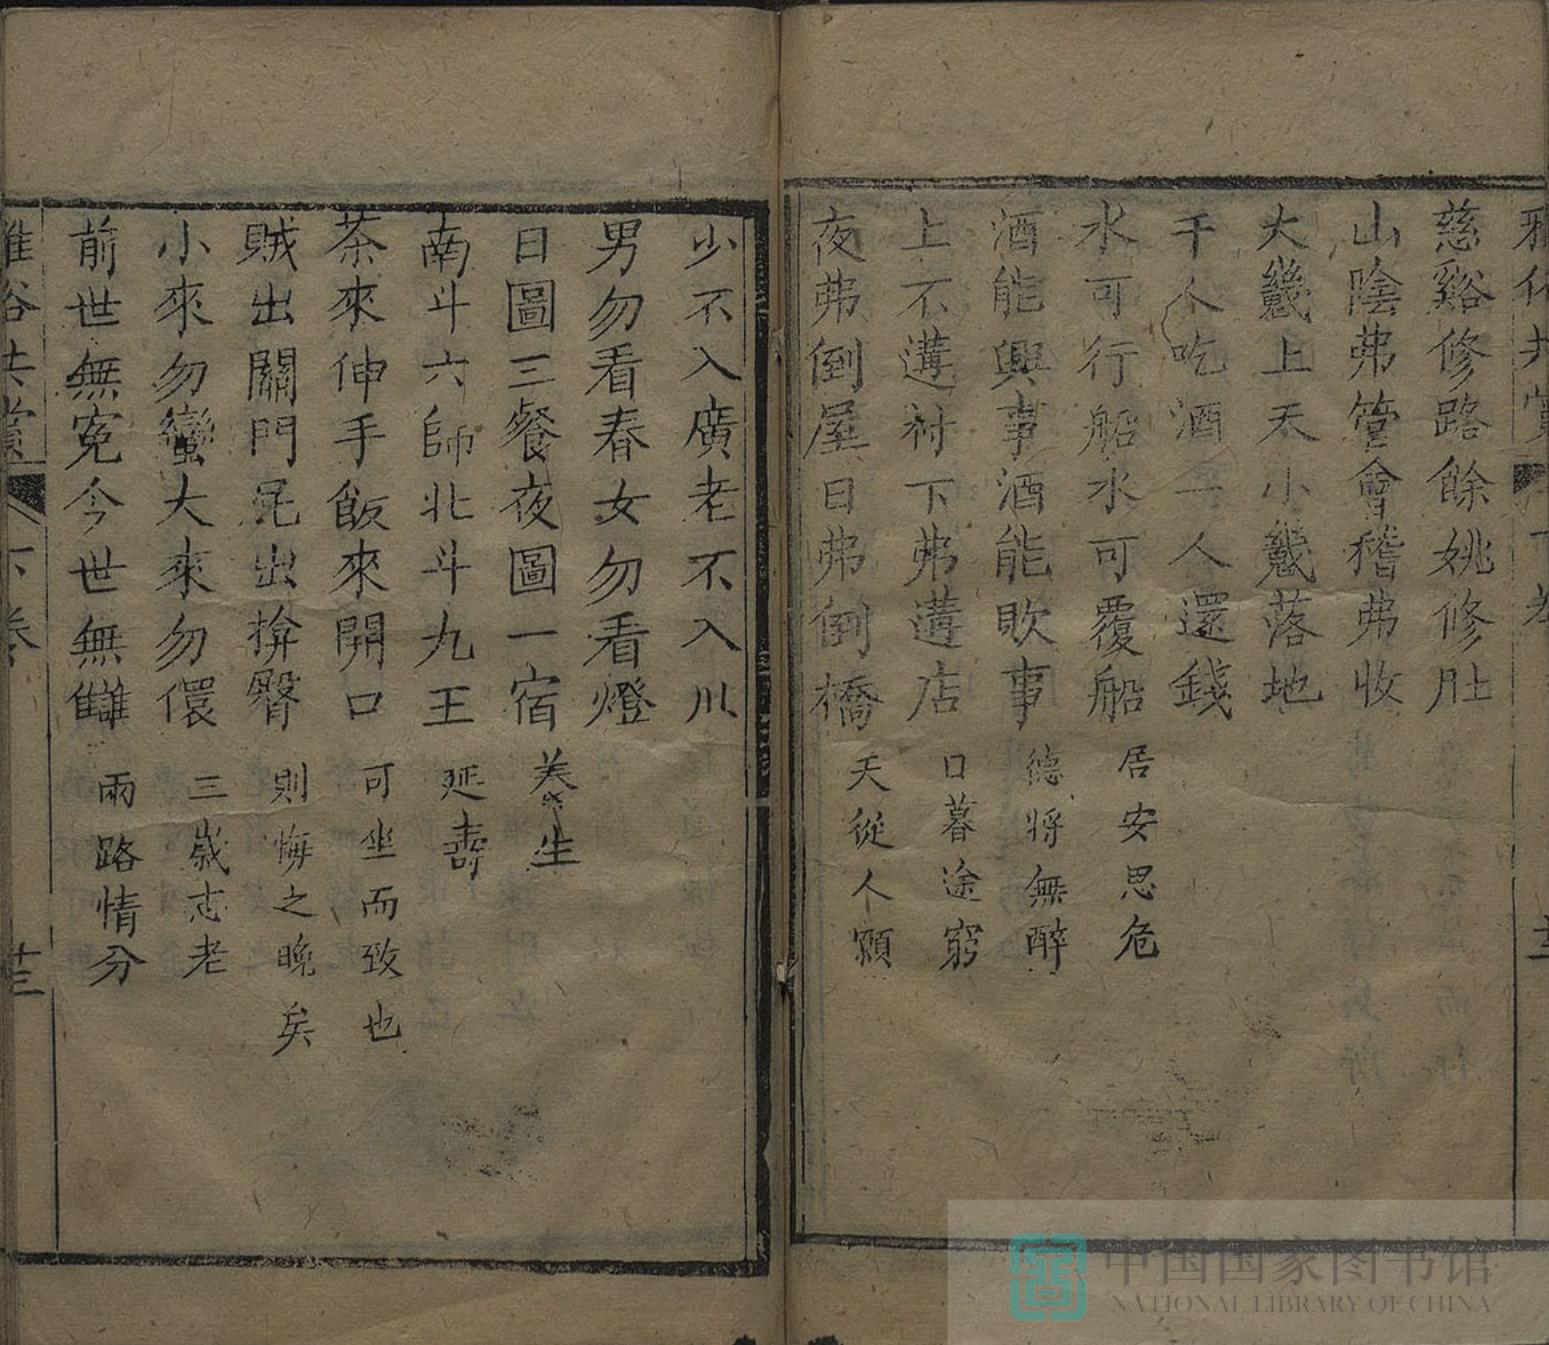 慈谿修路餘姚修肚
山陰弗管會稽弗收
大畿上天小畿落地
千人吃酒一人還錢
水可行船水可覆船 居安思危
酒能興事酒能敗事 德將無醉
上不遘村下弗遘店 日暮途窮
夜弗倒屋日弗倒橋 天從人願
少不入廣老不入川
男勿看春女勿看燈
日圖三餐夜圖一宿 养生
南斗六師北斗九王 延壽
茶來伸手飯來開口 可坐而致也
賊出關門兕出揜臀 則悔之晚矣
小來勿蠻大來勿儇 三歲志老
前世無冤今世無讎 兩路情分
雅俗共賞 下卷 廿三
中国国家图书馆
NATIONAL LIBRARY OF CHINA